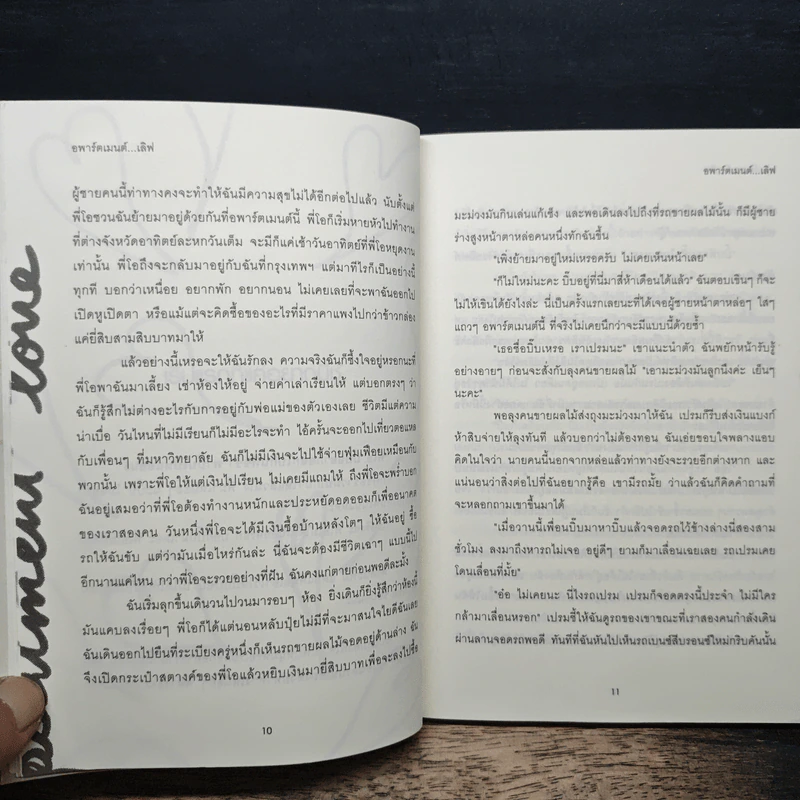 อพาร์ตเมนต์...เลิฟ
ผู้ชายคนนี้ท่าทางคงจะทำให้ฉันมีความสุขไม่ได้อีกต่อไปแล้ว นับตั้งแต่
พี่โอชวนฉันย้ายมาอยู่ด้วยกันที่อพาร์ตเมนต์นี้ พี่โอก็เริ่มหายหัวไปทำงาน
ที่ต่างจังหวัดอาทิตย์ละหกวันเต็ม จะมีก็แค่เช้าวันอาทิตย์ที่พี่โอหยุดงาน
เท่านั้น พี่โอถึงจะกลับมาอยู่กับฉันที่กรุงเทพฯ แต่มาทีไรก็เป็นอย่างนี้
ทุกที บอกว่าเหนื่อย อยากพัก อยากนอน ไม่เคยเลยที่จะพาฉันออกไป
เปิดหูเปิดตา หรือแม้แต่จะคิดซื้อของอะไรที่มีราคาแพงไปกว่าข้าวกล่อง
แค่ยี่สิบสามสิบบาทมาให้
แล้วอย่างนี้เหรอจะให้ฉันรักลง ความจริงฉันก็ซึ้งใจอยู่หรอกนะที่
พี่โอพาฉันมาเลี้ยง เช่าห้องให้อยู่ จ่ายค่าเล่าเรียนให้ แต่บอกตรงๆ ว่า
ฉันก็รู้สึกไม่ต่างอะไรกับการอยู่กับพ่อแม่ของตัวเองเลย ชีวิตมีแต่ความ
น่าเบื่อ วันไหนที่ไม่มีเรียนก็ไม่มีอะไรจะทำ ไอ้ครั้นจะออกไปเที่ยวตอแหล
กับเพื่อนๆ ที่มหาวิทยาลัย ฉันก็ไม่มีเงินจะไปใช้จ่ายฟุ่มเฟือยเหมือนกับ
พวกนั้น เพราะพี่โอให้แต่เงินไปเรียน ไม่เคยมีแถมให้ ถึงพี่โอจะพร่ำบอก
ฉันอยู่เสมอว่าที่พี่โอต้องทำงานหนักและประหยัดอดออมก็เพื่ออนาคต
ของเราสองคน วันหนึ่งพี่โอจะได้มีเงินซื้อบ้านหลังโตๆ ให้ฉันอยู่ ซื้อ
รถให้ฉันขับ แต่ว่ามันเมื่อไหร่กันล่ะ นี่ฉันจะต้องมีชีวิตเฉาๆ แบบนี้ไป
อีกนานแค่ไหน กว่าพี่โอจะรวยอย่างที่ฝัน ฉันคงแก่ตายก่อนพอดีละมั้ง
ฉันเริ่มลุกขึ้นเดินวนไปวนมารอบๆ ห้อง ยิ่งเดินก็ยิ่งรู้สึกว่าห้องนี้
มันแคบลงเรื่อยๆ พี่โอก็ได้แต่นอนหลับปุ๋ยไม่มีที่จะมาสนใจไยดีฉันเลย
ฉันเดินออกไปยืนที่ระเบียงครู่หนึ่งก็เห็นรถขายผลไม้จอดอยู่ด้านล่าง ฉัน
จึงเปิดกระเป๋าสตางค์ของพี่โอแล้วหยิบเงินมายี่สิบบาทเพื่อจะลงไปซื้อ
10
อพาร์ตเมนต์...เลิฟ
มะม่วงมันกินเล่นแก้เซ็ง และพอเดินลงไปถึงที่รถขายผลไม้นั้น ก็มีผู้ชาย
ร่างสูงหน้าตาหล่อคนหนึ่งทักฉันขึ้น
"เพิ่งย้ายมาอยู่ใหม่เหรอครับ ไม่เคยเห็นหน้าเลย"
"ก็ไม่ใหม่นะคะ บิ๊บอยู่ที่นี่มาสี่ห้าเดือนได้แล้ว" ฉันตอบเขินๆ ก็จะ
ไม่ให้เขินได้ยังไงล่ะ นี่เป็นครั้งแรกเลยนะที่ได้เจอผู้ชายหน้าตาหล่อๆ ใสๆ
แถวๆ อพาร์ตเมนต์นี้ ที่จริงไม่เคยนึกว่าจะมีแบบนี้ด้วยซ้ำ
"เธอชื่อบิ๊บเหรอ เราเปรมนะ" เขาแนะนำตัว ฉันพยักหน้ารับรู้
อย่างอายๆ ก่อนจะสั่งกับลุงคนขายผลไม้ "เอามะม่วงมันลูกนึงค่ะ เย็นๆ
นะคะ"
พอลุงคนขายผลไม้ส่งถุงมะม่วงมาให้ฉัน เปรมก็รีบส่งเงินแบงก์
ห้าสิบจ่ายให้ลุงทันที แล้วบอกว่าไม่ต้องทอน ฉันเอ่ยขอบใจพลางแอบ
คิดในใจว่า นายคนนี้นอกจากหล่อแล้วท่าทางยังจะรวยอีกต่างหาก และ
แน่นอนว่าสิ่งต่อไปที่ฉันอยากรู้คือ เขามีรถมั้ย ว่าแล้วฉันก็คิดคำถามที่
จะหลอกถามเขาขึ้นมาได้
"เมื่อวานนี้เพื่อนบิ๊บมาหาบิ๊บแล้วจอดรถไว้ข้างล่างนี่สองสาม
ชั่วโมง ลงมาถึงหารถไม่เจอ อยู่ดีๆ ยามก็มาเลื่อนเฉยเลย รถเปรมเคย
โดนเลื่อนที่มั้ย"
"อ๋อ ไม่เคยนะ นี่ไงรถเปรม เปรมก็จอดตรงนี้ประจำ ไม่มีใคร
กล้ามาเลื่อนหรอก" เปรมชี้ให้ฉันดูรถของเขาขณะที่เราสองคนกำลังเดิน
ผ่านลานจอดรถพอดี ทันทีที่ฉันหันไปเห็นรถเบนซ์สีบรอนซ์ใหม่กริบคันนั้น
11
love